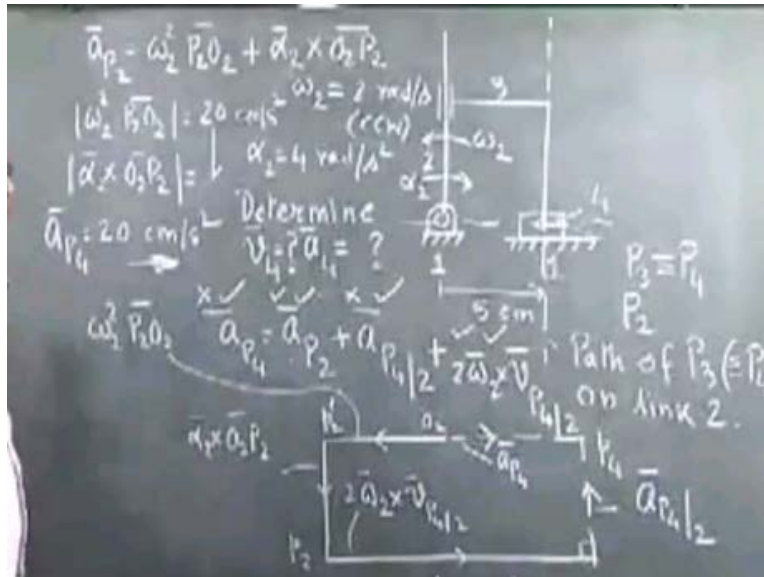 ā_P₂ = ω₂² P₂O₂ + ᾱ₂ × O₂P₂
|ω₂² P₂O₂| = 20 cm/s²
ω₂ = 2 rad/s
(CCW)
|ᾱ₂ × O₂P₂| =
α₂ = 4 rad/s²
ā_P₄ = 20 cm/s²
Determine
v̄₄ = ? ā₄ = ?
3
ω₂
2
α₂
4
1
1
5 cm
P₃ ≡ P₄
P₂
ω₂² P₂O₂
ā_P₄ = ā_P₂ + ā_P₄/₂ + 2ω̄₂ × v̄_P₄/₂
Path of P₃ (≡ P₄
on link 2.
ᾱ₂ × O₂P₂
P₂'
O₂
ā_P₄
P₄
2ω̄₂ × v̄_P₄/₂
ā_P₄/₂
P₂